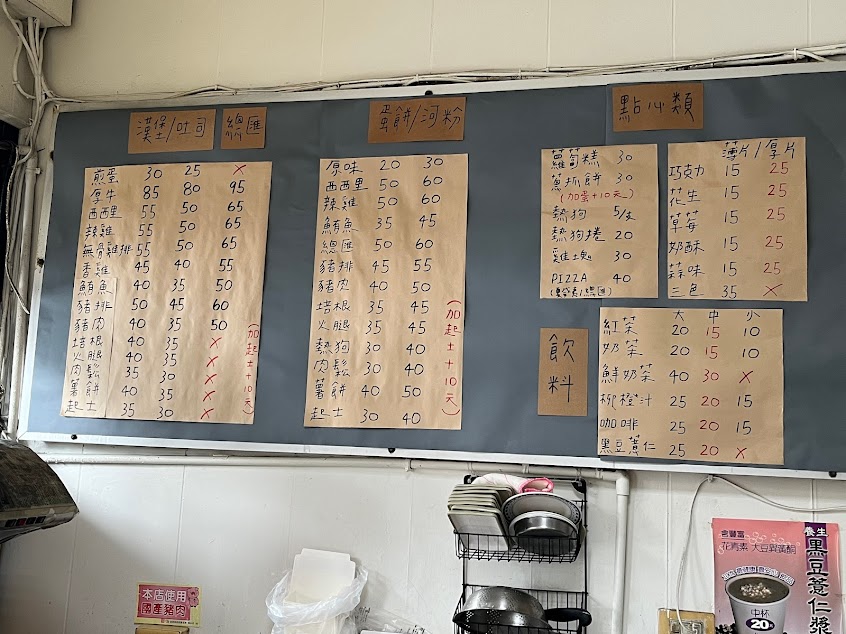 漢堡/吐司 總匯
煎蛋 30 25 X
厚牛 85 80 95
西西里 55 50 65
辣雞 55 50 65
無骨雞排 55 50 65
香雞 45 40 55
鮪魚 40 35 50
豬排 50 45 60
豬肉 40 35 50
培根 40 35 X
火腿 40 35 X
肉鬆 35 30 X
薯餅 40 35 X
起士 35 30 X
(加起士+10元)
蛋餅/河粉
原味 20 30
西西里 50 60
辣雞 50 60
鮪魚 35 45
總匯 50 60
豬排 45 55
豬肉 40 50
培根 35 45
火腿 35 45
熱狗 30 40
肉鬆 30 40
薯餅 40 50
起士 30 40
(加起士+10元)
點心類
蘿蔔糕 30
蔥抓餅 30
(加蛋+10元)
熱狗 5/支
熱狗捲 20
雞塊 30
PIZZA 40
薄片/厚片
巧克力 15 25
花生 15 25
草莓 15 25
奶酥 15 25
蒜味 15 25
三色 35 X
飲料
大 中 小
紅茶 20 15 10
奶茶 20 15 10
鮮奶茶 40 30 X
柳橙汁 25 20 15
咖啡 25 20 15
黑豆薏仁 25 20 X
本店使用
國產豬肉
含豐富
花青素 大豆異黃酮
養生
黑豆薏仁漿
中杯
20